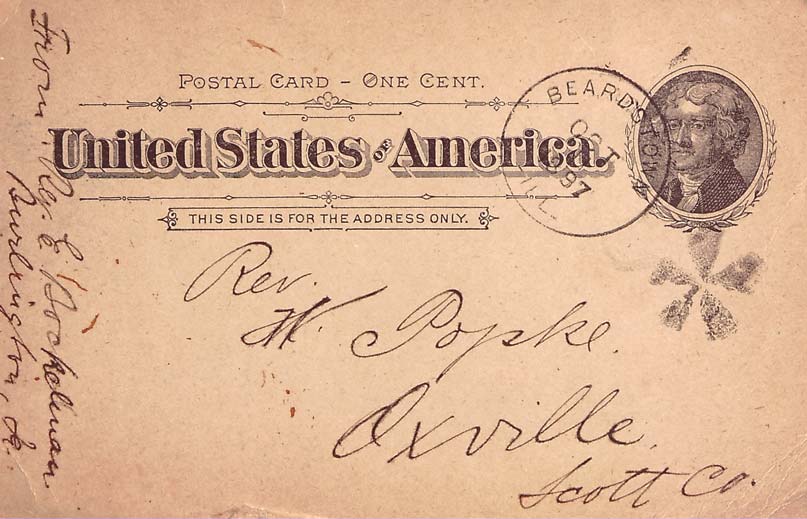 POSTAL CARD – ONE CENT.
United States of America.
THIS SIDE IS FOR THE ADDRESS ONLY.
BEARDSTOWN
OCT
1897
ILL.
Rev.
W. Popke.
Oxville,
Scott Co.
From Rev. E. Bockelman.
Burlington, Ia.